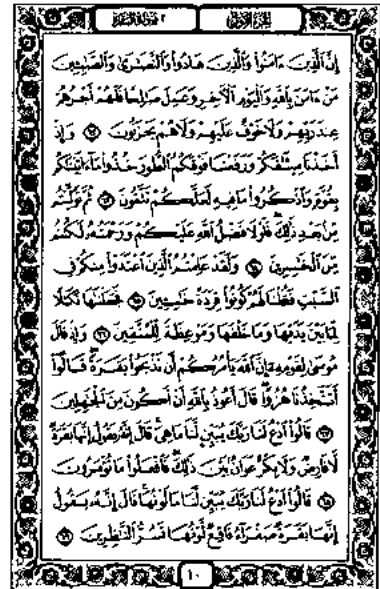 الجزء الأول ٢ سورة البقرة
إِنَّ ٱلَّذِينَ ءَامَنُوا۟ وَٱلَّذِينَ هَادُوا۟ وَٱلنَّصَـٰرَىٰ وَٱلصَّـٰبِـِٔينَ
مَنْ ءَامَنَ بِٱللَّهِ وَٱلْيَوْمِ ٱلْـَٔاخِرِ وَعَمِلَ صَـٰلِحًا فَلَهُمْ أَجْرُهُمْ
عِندَ رَبِّهِمْ وَلَا خَوْفٌ عَلَيْهِمْ وَلَا هُمْ يَحْزَنُونَ ٦٢ وَإِذْ
أَخَذْنَا مِيثَـٰقَكُمْ وَرَفَعْنَا فَوْقَكُمُ ٱلطُّورَ خُذُوا۟ مَآ ءَاتَيْنَـٰكُم
بِقُوَّةٍ وَٱذْكُرُوا۟ مَا فِيهِ لَعَلَّكُمْ تَتَّقُونَ ٦٣ ثُمَّ تَوَلَّيْتُم
مِّنۢ بَعْدِ ذَٰلِكَ ۖ فَلَوْلَا فَضْلُ ٱللَّهِ عَلَيْكُمْ وَرَحْمَتُهُۥ لَكُنتُم
مِّنَ ٱلْخَـٰسِرِينَ ٦٤ وَلَقَدْ عَلِمْتُمُ ٱلَّذِينَ ٱعْتَدَوْا۟ مِنكُمْ فِى
ٱلسَّبْتِ فَقُلْنَا لَهُمْ كُونُوا۟ قِرَدَةً خَـٰسِـِٔينَ ٦٥ فَجَعَلْنَـٰهَا نَكَـٰلًا
لِّمَا بَيْنَ يَدَيْهَا وَمَا خَلْفَهَا وَمَوْعِظَةً لِّلْمُتَّقِينَ ٦٦ وَإِذْ قَالَ
مُوسَىٰ لِقَوْمِهِۦٓ إِنَّ ٱللَّهَ يَأْمُرُكُمْ أَن تَذْبَحُوا۟ بَقَرَةً ۖ قَالُوٓا۟
أَتَتَّخِذُنَا هُزُوًا ۖ قَالَ أَعُوذُ بِٱللَّهِ أَنْ أَكُونَ مِنَ ٱلْجَـٰهِلِينَ
٦٧ قَالُوا۟ ٱدْعُ لَنَا رَبَّكَ يُبَيِّن لَّنَا مَا هِىَ ۚ قَالَ إِنَّهُۥ يَقُولُ إِنَّهَا بَقَرَةٌ
لَّا فَارِضٌ وَلَا بِكْرٌ عَوَانٌۢ بَيْنَ ذَٰلِكَ ۖ فَٱفْعَلُوا۟ مَا تُؤْمَرُونَ
٦٨ قَالُوا۟ ٱدْعُ لَنَا رَبَّكَ يُبَيِّن لَّنَا مَا لَوْنُهَا ۚ قَالَ إِنَّهُۥ يَقُولُ
إِنَّهَا بَقَرَةٌ صَفْرَآءُ فَاقِعٌ لَّوْنُهَا تَسُرُّ ٱلنَّـٰظِرِينَ ٦٩
١٠